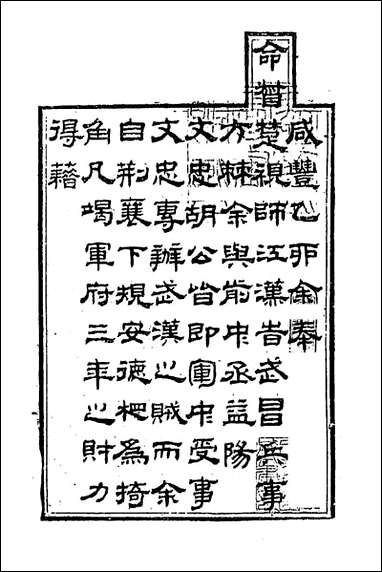 咸豐乙卯余奉
命督楚視師江漢旹武昌兵事
方棘余與前中丞益陽
文忠胡公皆即軍中受事
文忠專辦武漢之賊而余
自荊襄下規安德相為掎
角凡竭軍府三年之財力
得藉